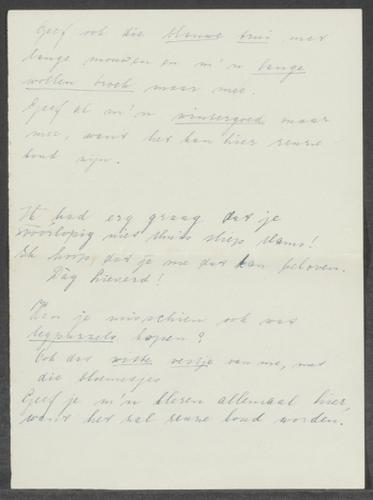 Geef ook die blauwe trui met
lange mouwen en m'n lange
wollen broek maar mee.
Geef al m'n wintergoed maar
mee, want het kan hier reuze
koud zijn.
Ik had erg graag dat je
voorlopig niet thuis sliep Mams!
Ik hoop dat je me dat kan beloven.
Dag lieverd!
Kan je misschien ook wat
legpuzzels kopen?
Ook dat witte vestje van me, met
die bloemetjes
Geef je m'n kleren allemaal hier,
want het zal reuze koud worden.